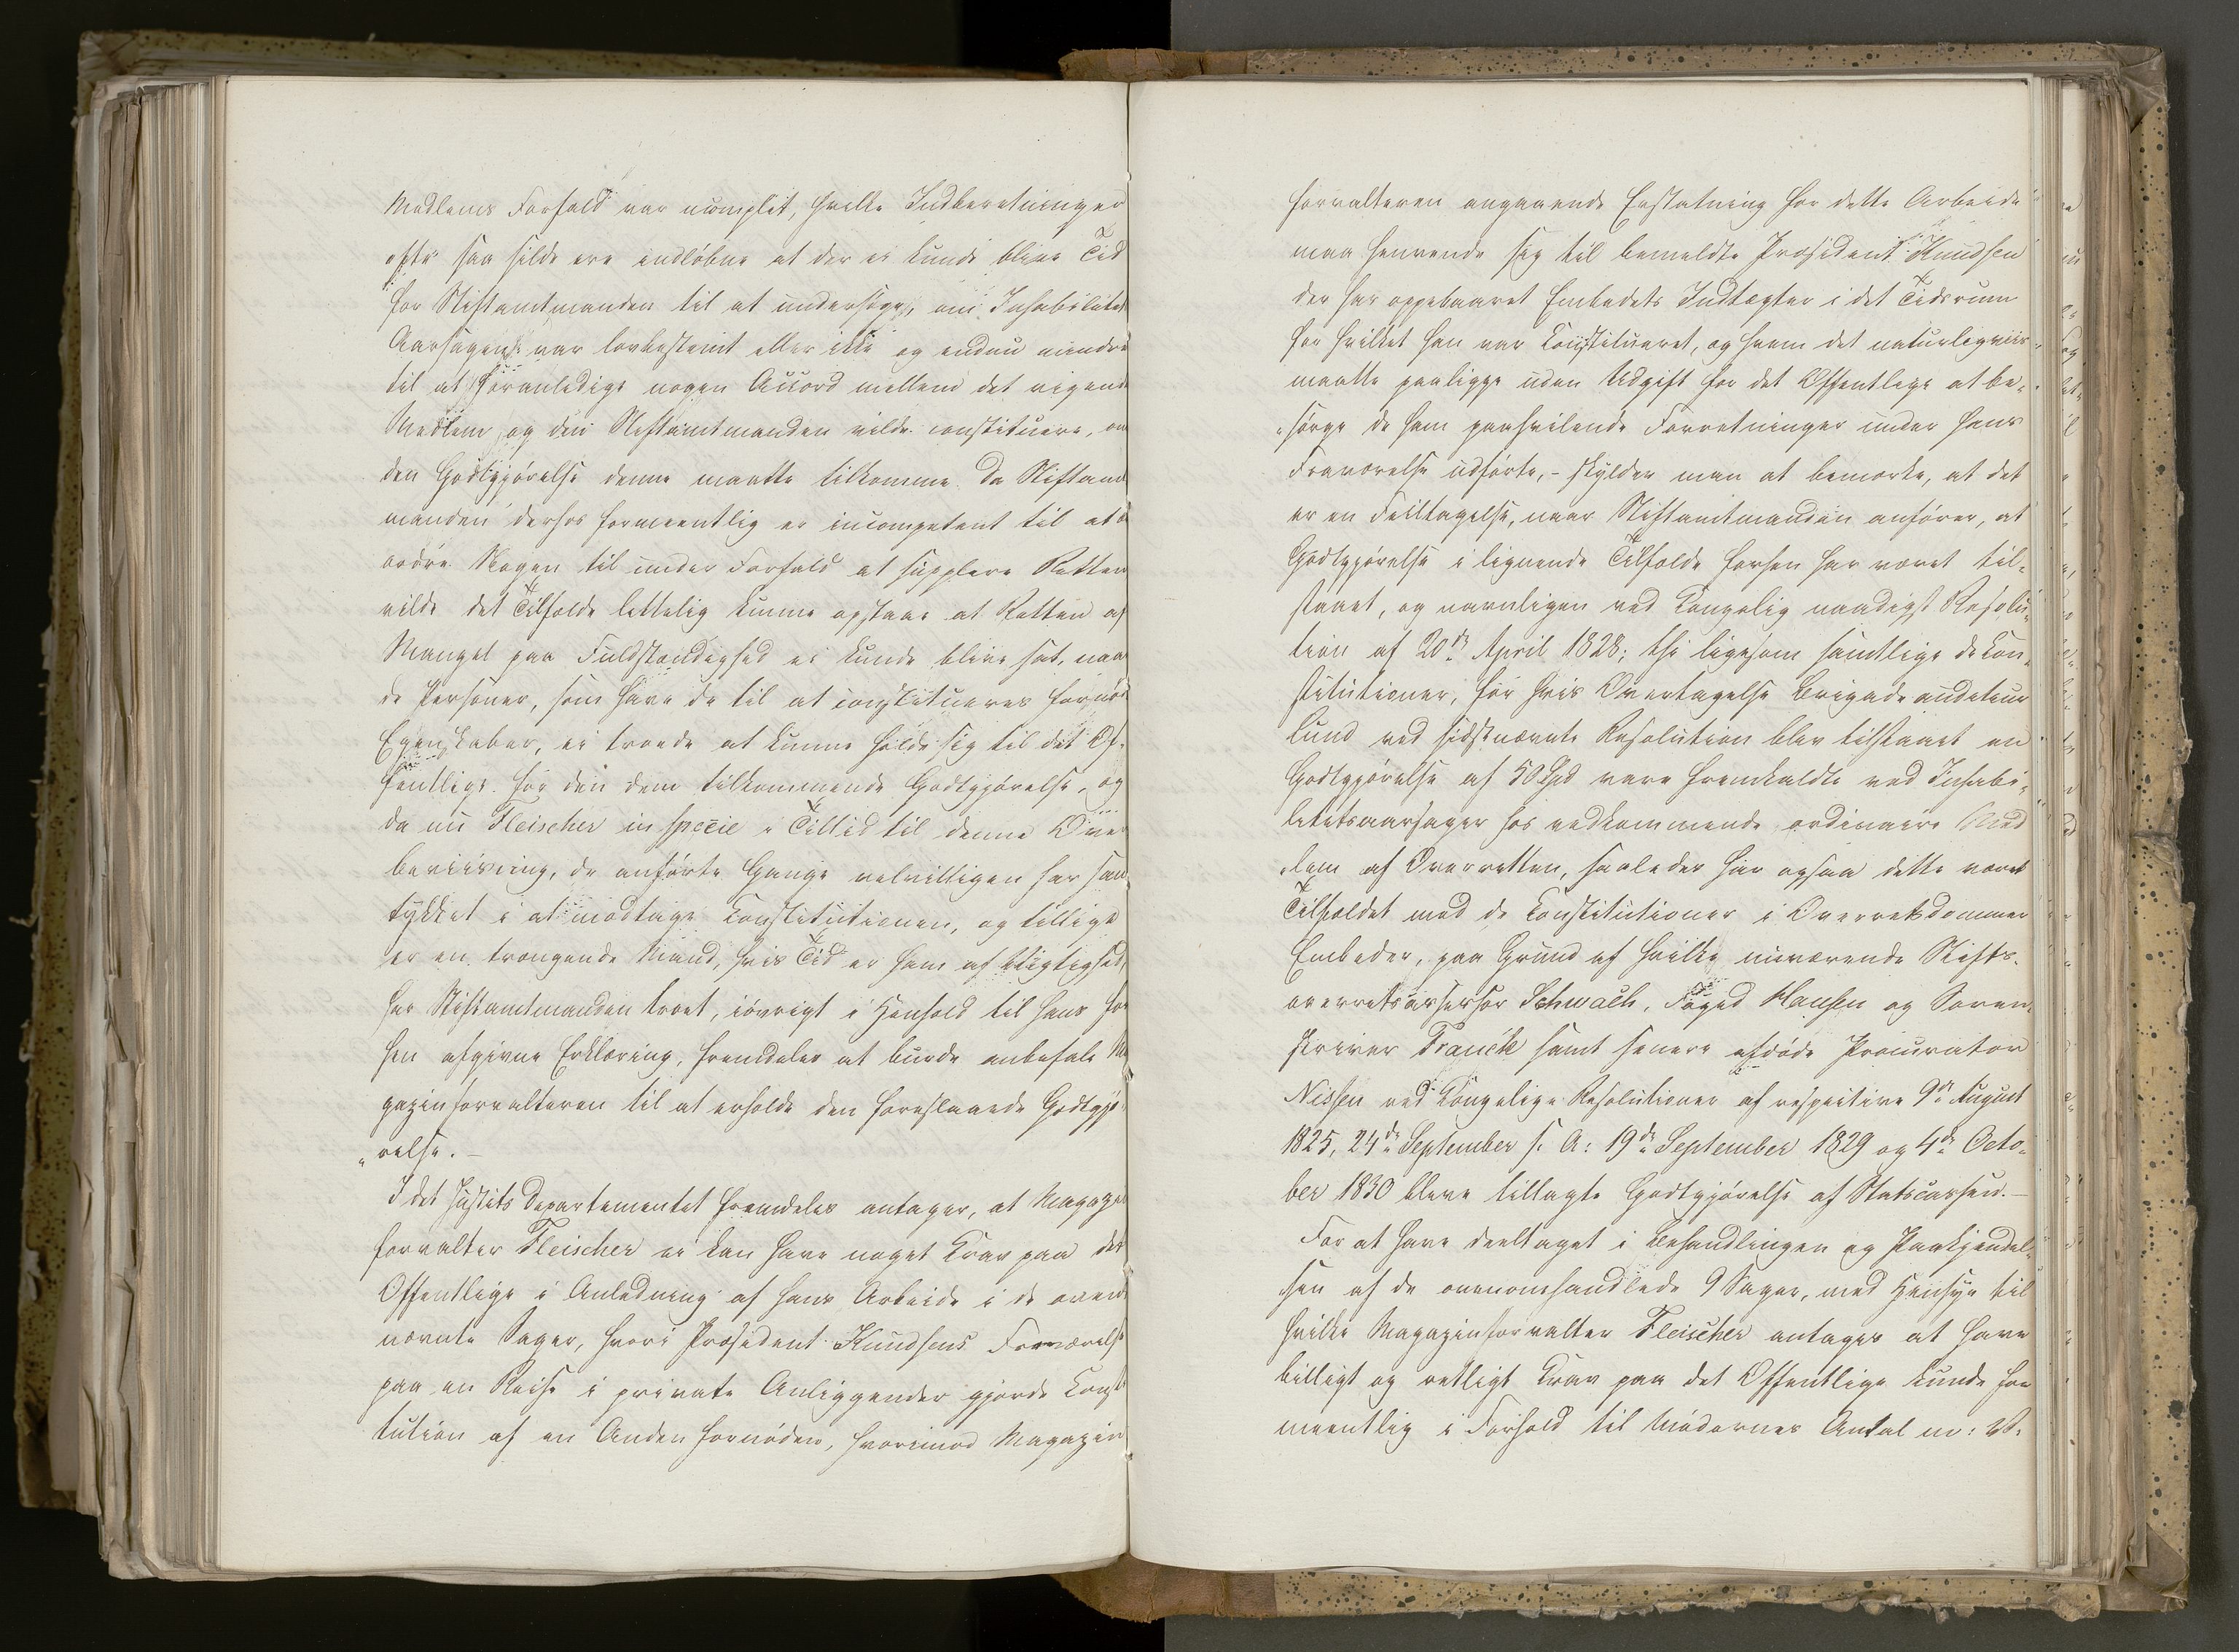 Medlems Forfald var ucomplet, hvilke Indberetninger
ofte saa silde ere indløbne at der ei kunde blive Tid
for Stiftamtmanden til at undersøge, om Inhabilitets
Aarsagen var lovbestemt eller ikke og endnu mindre
til at foranledige nogen Accord mellem det vigende
Medlem og den Stiftamtmanden vilde constituere, om
den Godtgjørelse denne maatte tilkomme. Da Stiftamt
manden derhos formeentlig er incompetent til at be
ordre Nogen til under Forfald at supplere Retten
vilde det Tilfælde lettelig kunne opstaae at Retten af
Mangel paa Fuldstændighed ei kunde blive sat, naar
de Personer, som have de til at constitueres fornødne
Egenskaber, ei troede at kunne holde sig til det Of-
fentlige for den dem tilkommende Godtgjørelse, og
da nu Fleischer in specie i Tillid til denne Over
beviisning, de anførte Gange velvilligen har sam
tykket i at modtage Constitutionen, og tillige
er en trængende Mand, hvis Tid er ham af Vigtighed,
har Stiftamtmanden troet, iøvrigt i Henhold til hans for
hen afgivne Erklæring, fremdeles at burde anbefale Ma
gazinforvalteren til at erholde den foreslaaede Godtgjø-
relse. -
I det Justits Departementet fremdeles antager, at Magazin
forvalter Fleischer ei kan have noget Krav paa det
Offentlige i Anledning af hans Arbeide i de oven
nævnte Sager, hvori Præsident Knudsens Fraværelse
paa en Reise i private Anliggender gjorde Consti
tution af en Anden fornøden, hvorimod Magazin
forvalteren angaaende Erstatning for dette Arbeide
maa henvende sig til bemeldte Præsident Knudsen
der har oppebaaret Embedets Indtægter i det Tidsrum
for hvilket han var Constitueret, og hvem det naturligviis
maatte paaligge uden Udgift for det Offentlige at be-
sørge de ham paahvilende Forretninger under hans
Fraværelse udførte, - skylder man at bemærke, at det
er en Feiltagelse, naar Stiftamtmanden anfører, at
Godtgjørelse i lignende Tilfælde forhen har været til-
staaet, og navnligen ved Kongelig naadigst Resolu-
tion af 20de April 1828; thi ligesom samtlige de Con-
stitutioner, for hvis Overtagelse Brigadeauditeur
Lund ved sidstnævnte Resolution blev tilstaaet en
Godtgjørelse af 50 Spd vare fremkaldte ved Inhabi-
litetsaarsager hos vedkommende ordinaire Med
lem af Overretten, saaledes har ogsaa dette været
Tilfældet med de Constitutioner i Overretsdommer
Embeder, paa Grund af hvilke nuværende Stifts-
overretsassessor Schwach, Foged Hansen og Soren-
skriver Franck samt senere afdøde Procurator
Nissen ved Kongelige Resolutioner af respective 9de August
1825, 24de September s. A: 19de September 1829 og 4de Octo-
ber 1830 bleve tillagte Godtgjørelse af Statscassen. -
For at have deeltaget i Behandlingen og Paakjendel-
sen af de ovenomhandlede 9 Sager, med Hensyn til
hvilke Magazinforvalter Fleischer antages at have
billigt og retligt Krav paa det Offentlige kunde for
meentlig i Forhold til Mødernes Antal m: V.